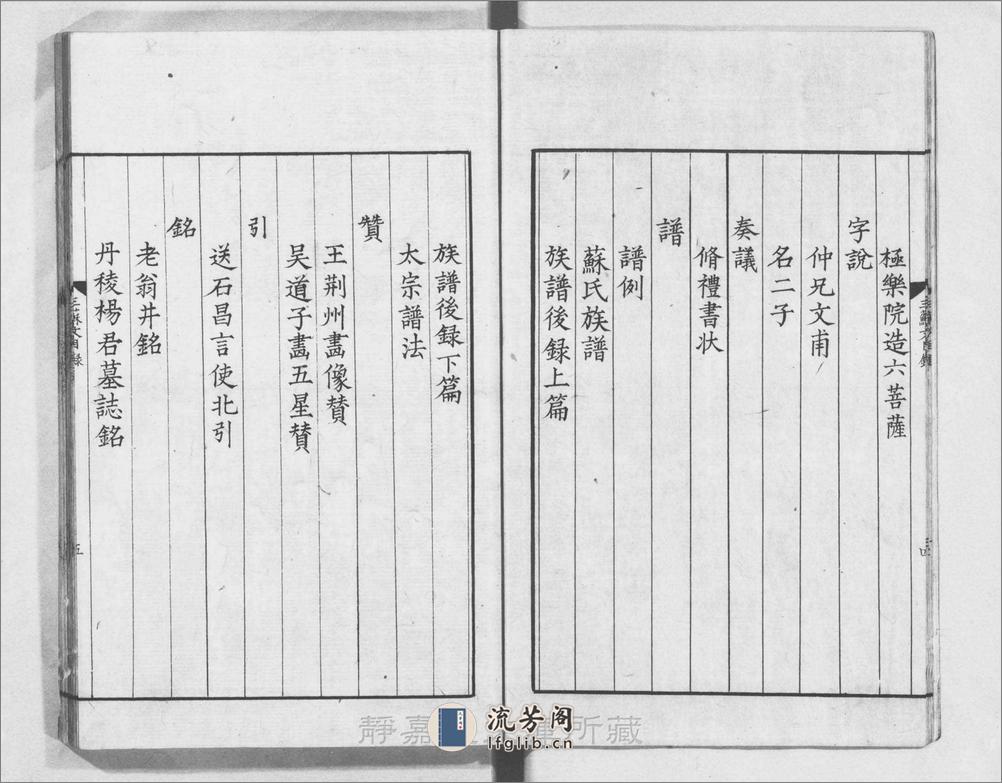 極樂院造六菩薩
字說
仲兄文甫
名二子
奏議
脩禮書状
譜
譜例
蘇氏族譜
族譜後録上篇
族譜後録下篇
太宗譜法
贊
王荆州畫像賛
吴道子畫五星賛
引
送石昌言使北引
銘
老翁井銘
丹稜楊君墓誌銘
五
流芳阁
lfglib.cn